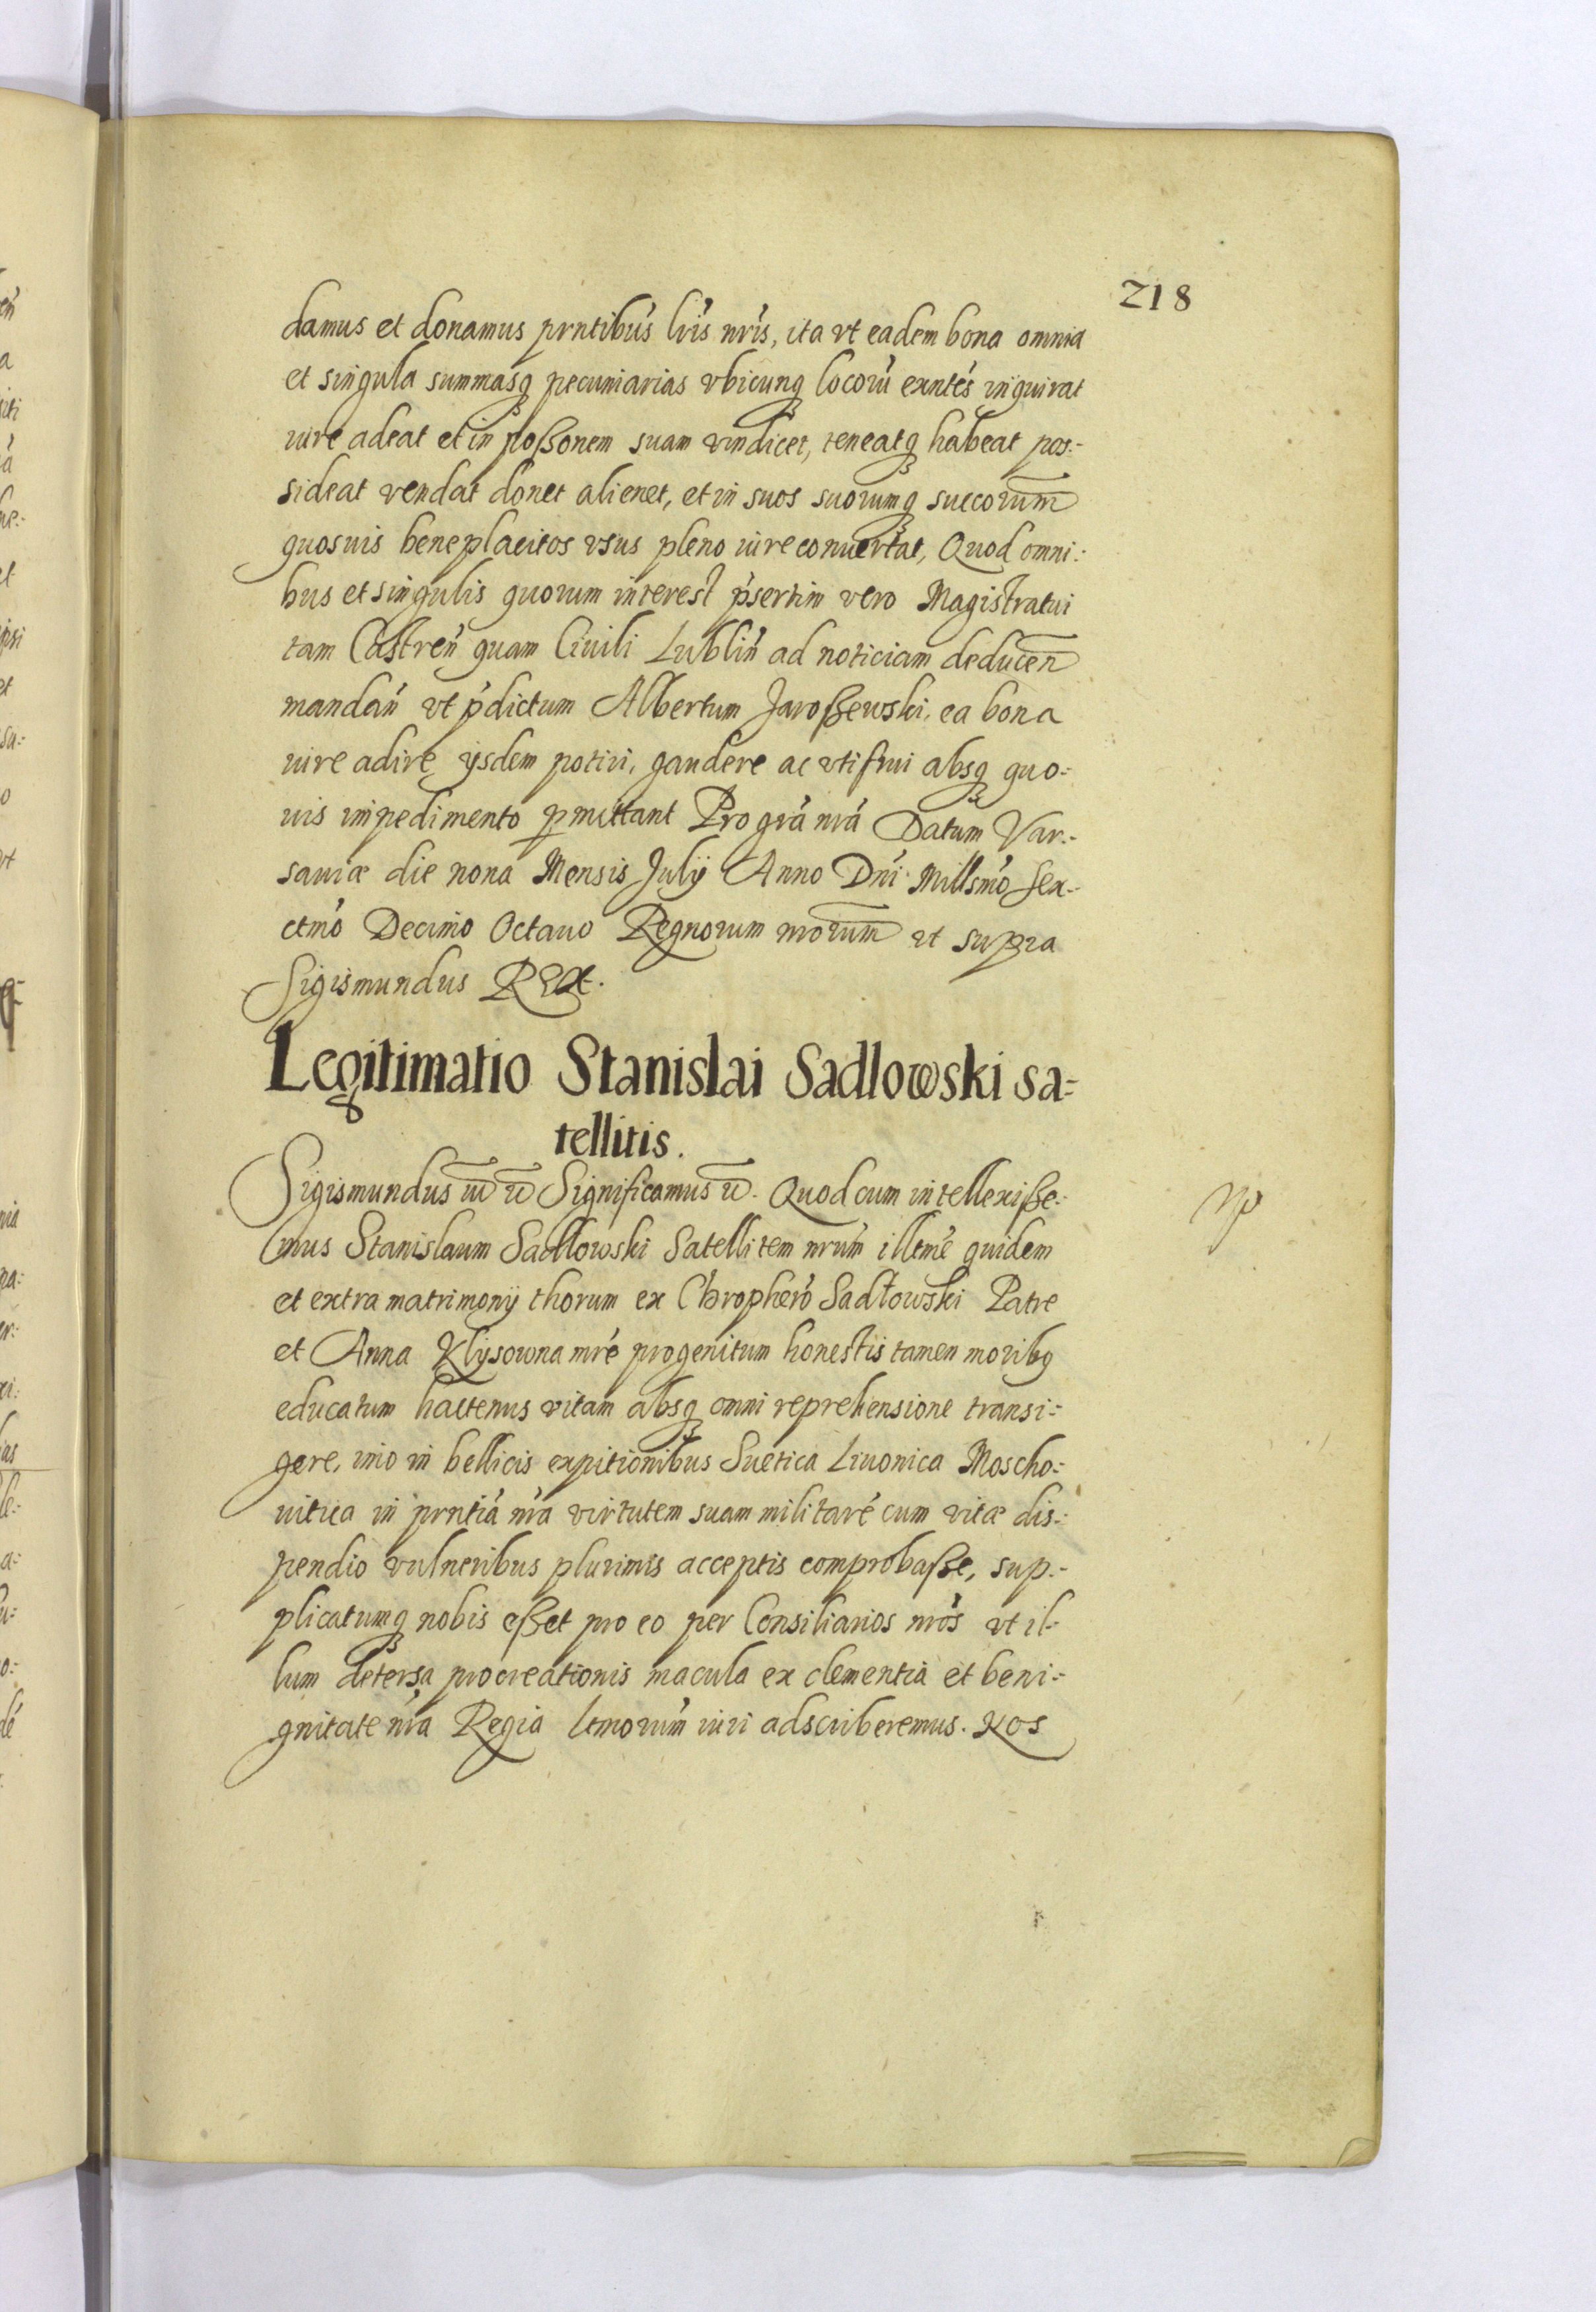 218
damus et donamus prntibús lrís nrís, ita vt eadem bona omnia
et singula summasq pecuniarias vbicunq locorú exntés inquirat
iure adeat et in poßonem suam vindicet, teneatq habeat pos:
sideat vendat donet alienet, et in suos suorumq succorum̅
quosuis beneplacitos vsus pleno iure conuertat, Quod omni:
bus et singulis quorum interest ṕsertim vero Magistratui
tam Castreń quam Ciuili Lubliń ad noticiam deducen̅
mandań vt ṕdictum Albertum Jaroßewski, ea bona
iure adire ijsdem potiri, gaudere ac vti frui absq quo:
uis impedimento pmittant Pro grá nrá Datum Var:
sauiæ die nona Mensis Julij Anno Dní Millsmó Sex:
ctmó Decimo Octauo Regnorum nrorum̅ ut supra
Sigismundus Rex.
Legitimatio Stanislai Sadlowski sa=
tellitis.
Sigismundus iu̅ u̅ Significamus u̅. Quod cum intellexiße:
mus Stanislaum Sadlowski Satellitem nrúm illtmé quidem
et extra matrimonij thorum ex Chropheró Sadłowski Patre
et Anna Klysowna mré progenitum honestis tamen moribq
educatum hactenus vitam absq omni reprehensione transi:
gere, imo in bellicis expitionibus Suetica Liuonica Moscho:
uitica in prntiá nrá virtutem suam militaré cum vitæ dis:
pendio vulneribus plurimis acceptis comprobaße, sup:
plicatumq nobis eßet pro eo per Consiliarios nrós vt il:
lum detersa procreationis macula ex clementia et beni:
gnitate nrá Regia ltmorúm iuri adscriberemus. Nos